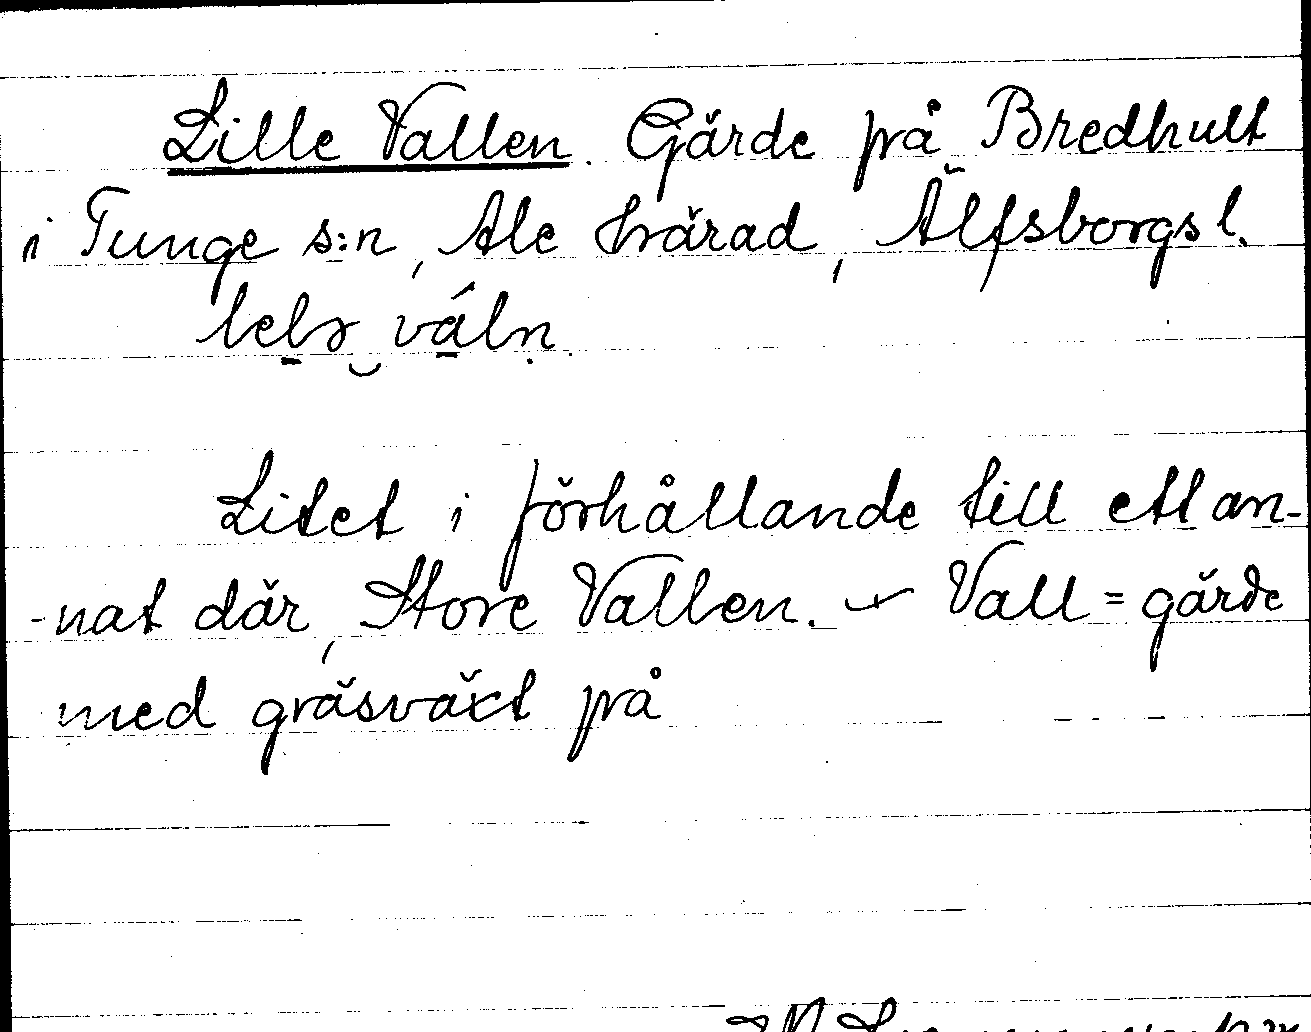 Lille Vallen. Gärde på Bredhult
i Tunge s:n, Ale härad, Älfsborgs l.
Litet i förhållande till ett an-
-nat där, Store Vallen. — Vall = gärde
med gräsväxt på